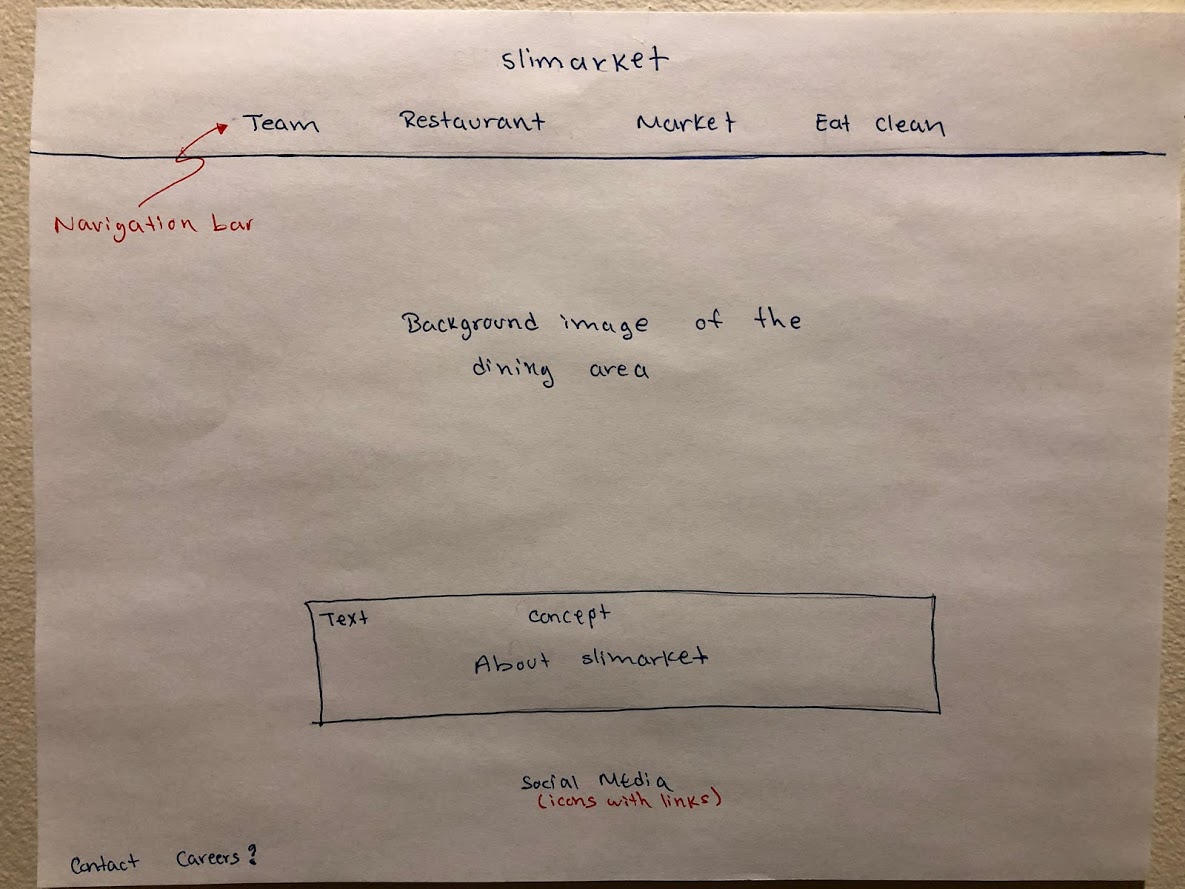 slimarket
Team Restaurant Market Eat clean
Navigation bar
Background image of the
dining area
Text concept
About slimarket
Social Media
(icons with links)
Contact Careers?